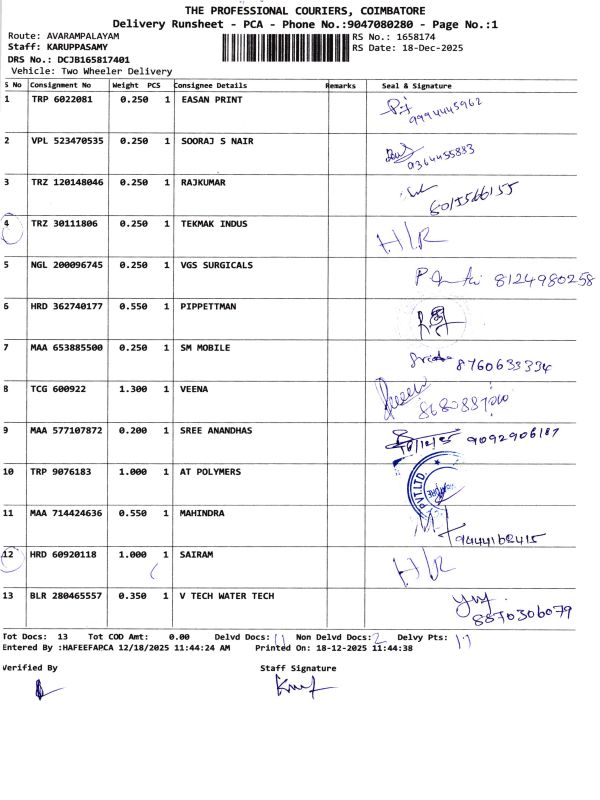 THE PROFESSIONAL COURIERS, COIMBATORE
Delivery Runsheet - PCA - Phone No.:9047080280 - Page No.:1
Route: AVARAMPALAYAM RS No.: 1658174
Staff: KARUPPASAMY RS Date: 18-Dec-2025
DRS No.: DCJB165817401
Vehicle: Two Wheeler Delivery
S No Consignment No Weight PCS Consignee Details Remarks Seal & Signature
1 TRP 6022081 0.250 1 EASAN PRINT
9994445962
2 VPL 523470535 0.250 1 SOORAJ S NAIR
9364455883
3 TRZ 120148046 0.250 1 RAJKUMAR
6015566155
4 TRZ 30111806 0.250 1 TEKMAK INDUS H/R
5 NGL 200096745 0.250 1 VGS SURGICALS
8124980258
6 HRD 362740177 0.550 1 PIPPETTMAN
7 MAA 653885500 0.250 1 SM MOBILE
8760633334
8 TCG 600922 1.300 1 VEENA
9 MAA 577107872 0.200 1 SREE ANANDHAS
18/12/25 9092906187
10 TRP 9076183 1.000 1 AT POLYMERS
PVT.LTD.
11 MAA 714424636 0.550 1 MAHINDRA
9444162415
12 HRD 60920118 1.000 1 SAIRAM H/R
13 BLR 280465557 0.350 1 V TECH WATER TECH
8870306079
Tot Docs: 13 Tot COD Amt: 0.00 Delvd Docs: 11 Non Delvd Docs: 2 Delvy Pts: 11
Entered By :HAFEEFAPCA 12/18/2025 11:44:24 AM Printed On: 18-12-2025 11:44:38
Verified By Staff Signature